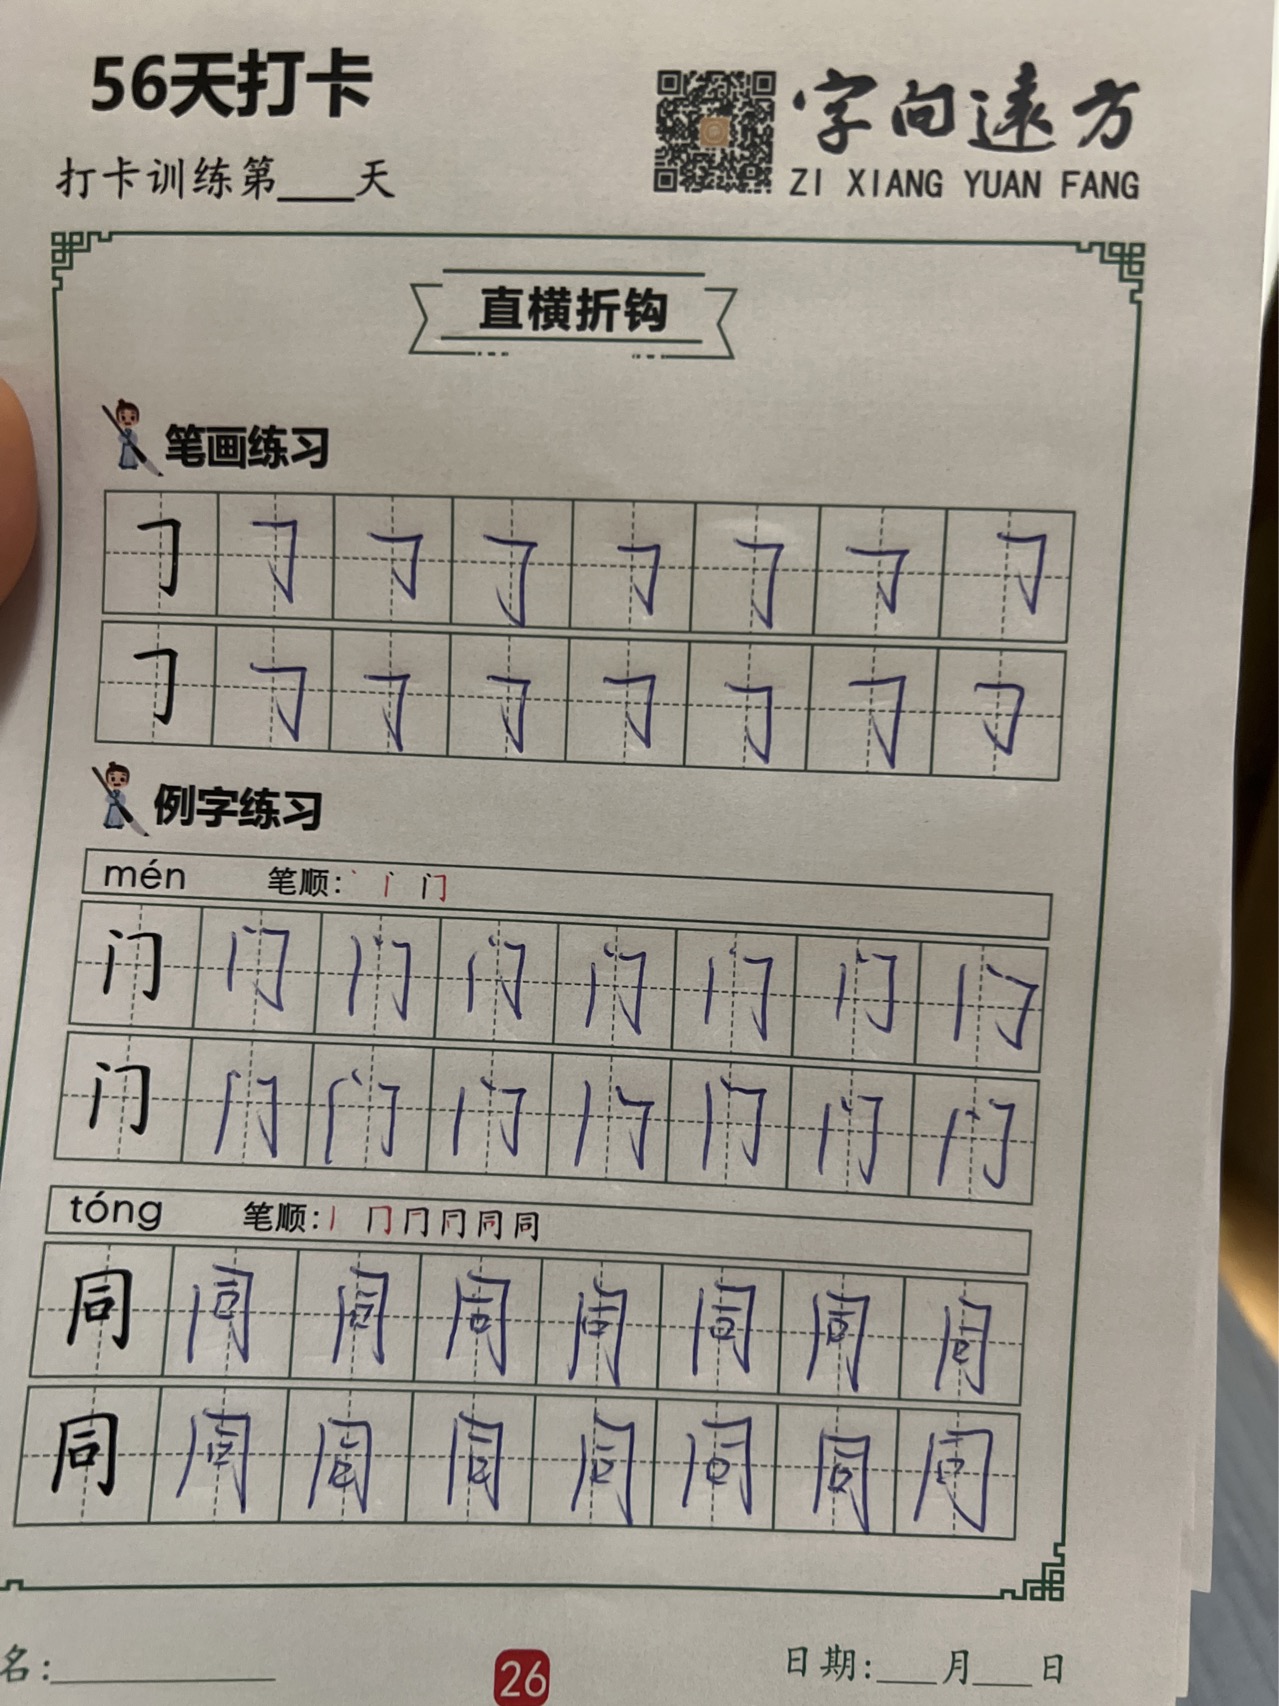 56天打卡
打卡训练第___天
字向遠方
ZI XIANG YUAN FANG
直横折钩
笔画练习
𠃌 𠃌 𠃌 𠃌 𠃌 𠃌 𠃌 𠃌
𠃌 𠃌 𠃌 𠃌 𠃌 𠃌 𠃌 𠃌
例字练习
mén 笔顺: 门
门 门 门 门 门 门 门 门
门 门 门 门 门 门 门 门
tóng 笔顺: 同 同
同 同 同 同 同 同 同 同
同 同 同 同 同 同 同 同
名:___________
26
日期:___月___日